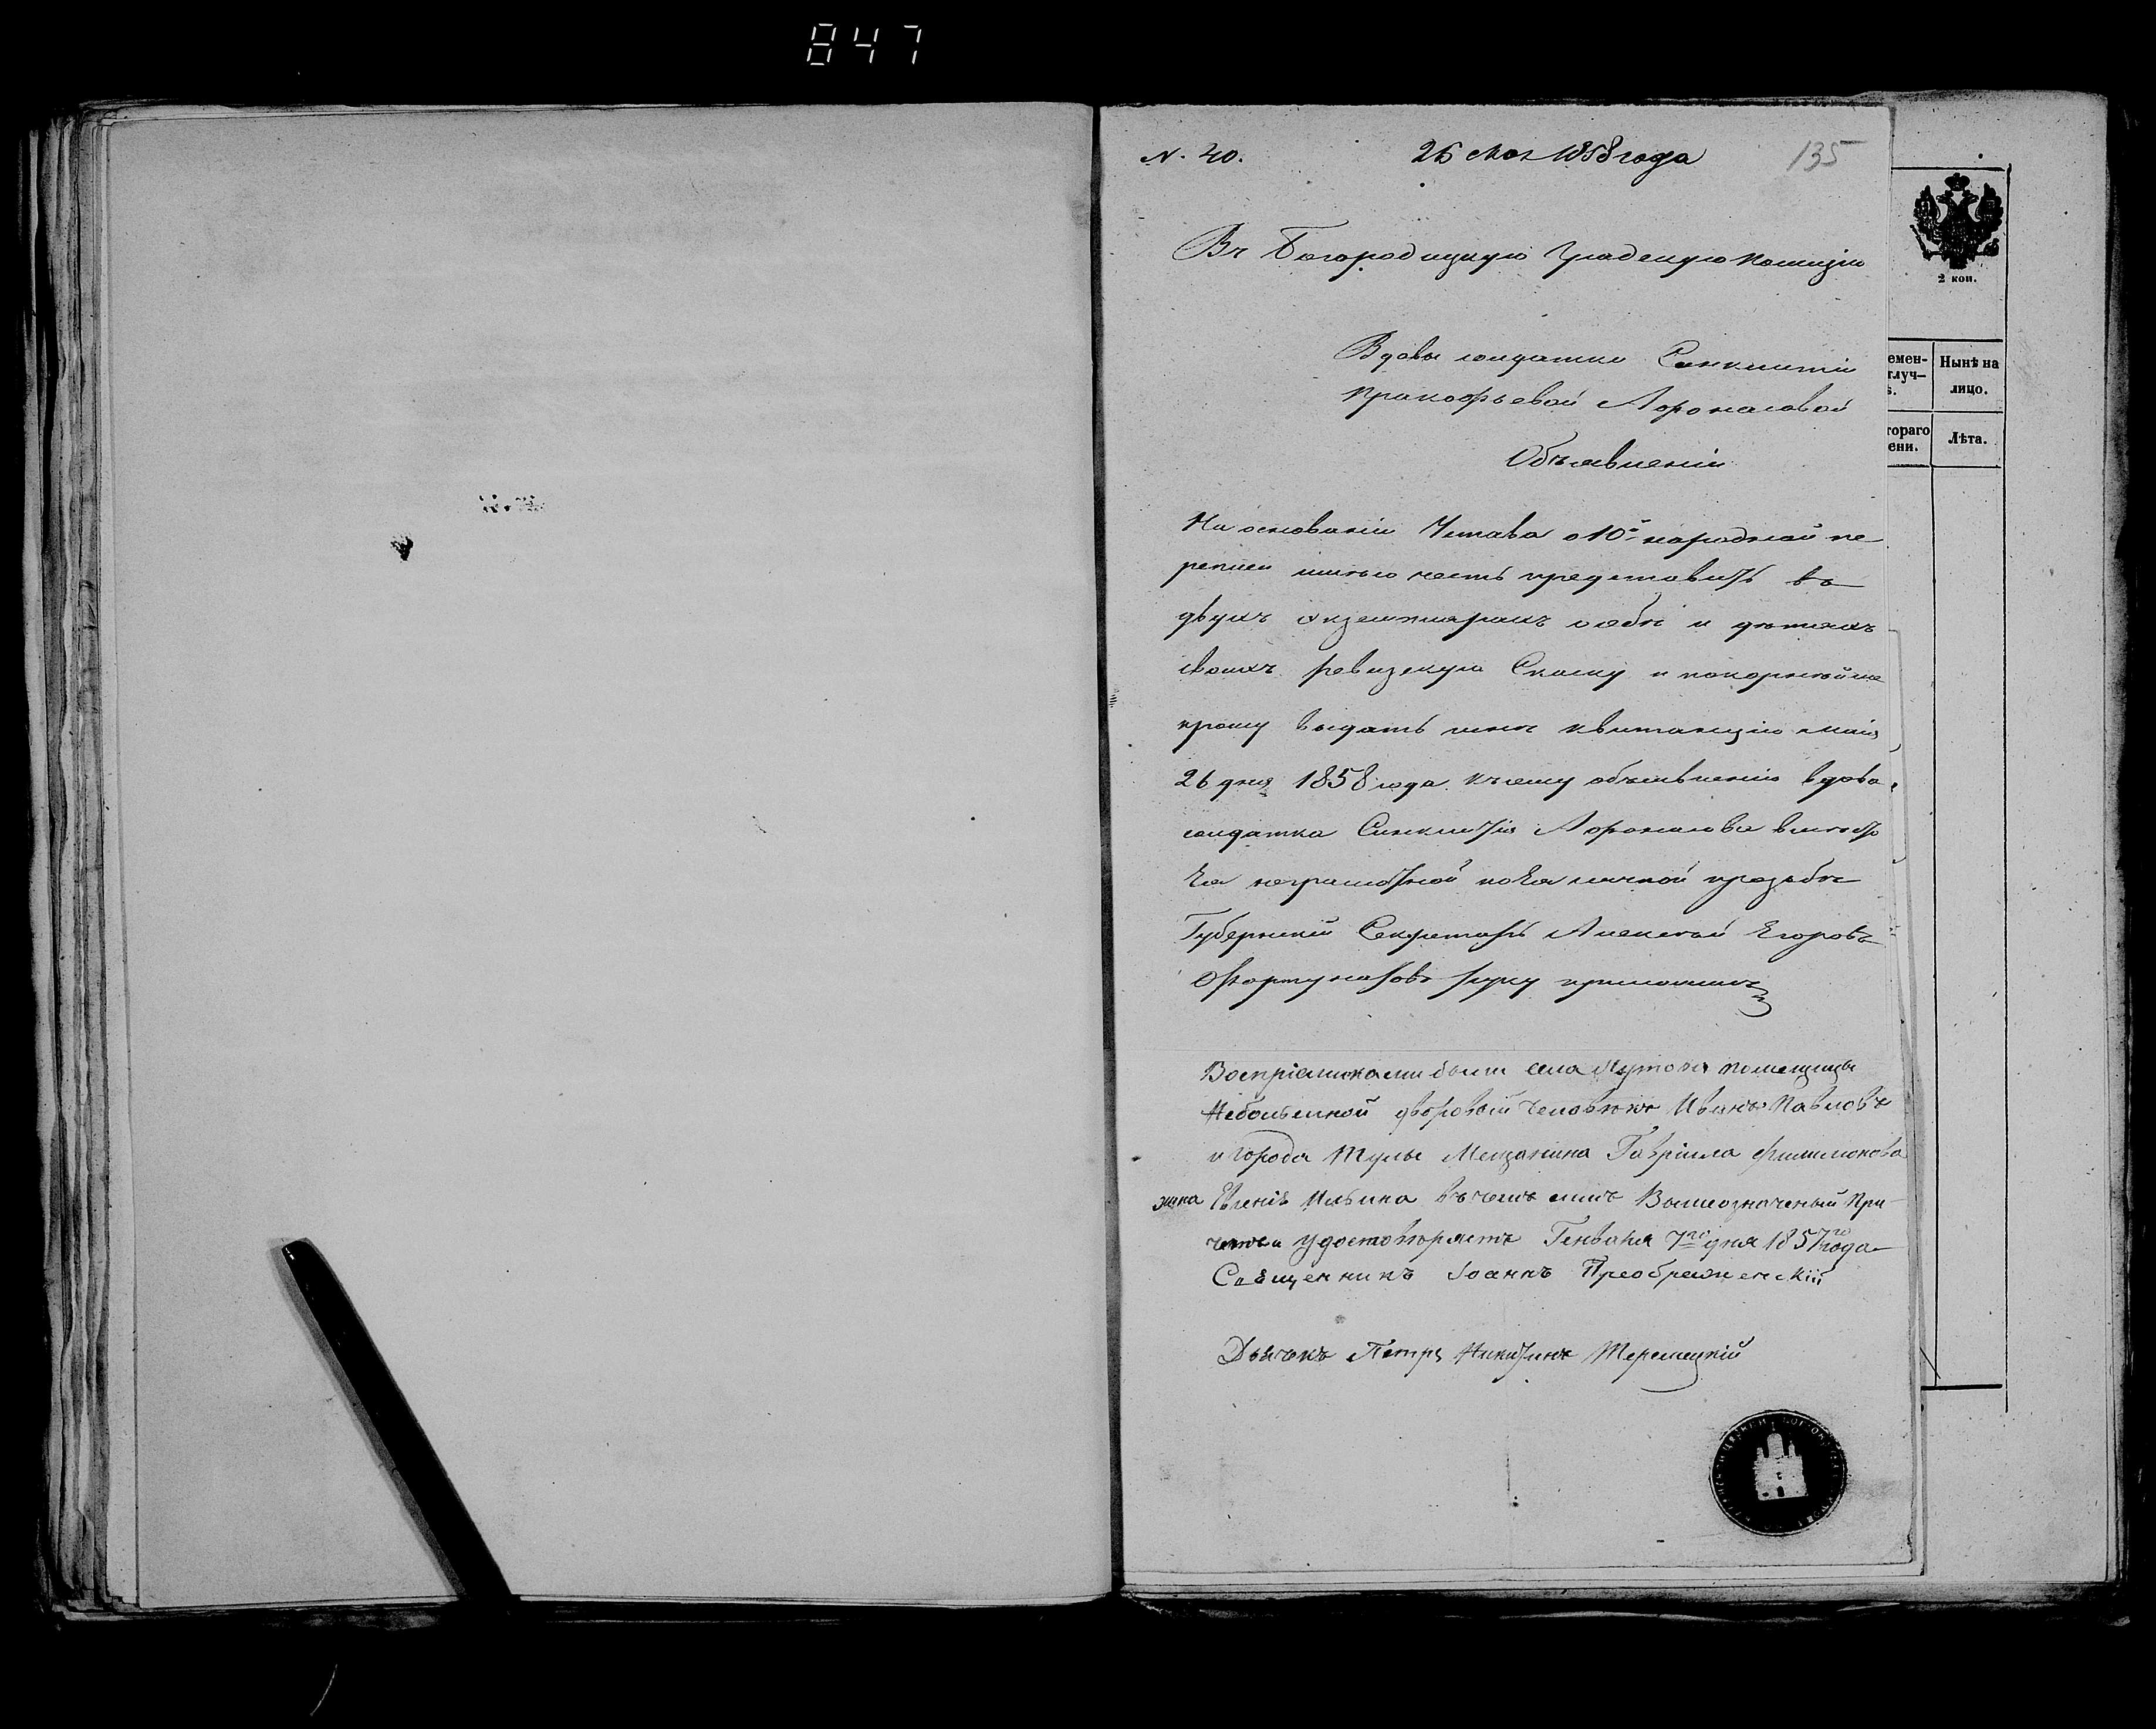 847
N. 40. 26 Мая 1858 года 135
2 коп.
Въ Богородицкую Градскую Полицію
Вдовы солдатки Синклитіи
Прокофьевой Афонасовой
Объявленіе
емен- Нынѣ на
тлуч- лицо.
тораго Лѣта.
ени.
На основаніи Устава о 10й народной пе
реписи имѣю честь представить въ
двухъ экземплярахъ о себѣ и дѣтяхъ
своихъ ревизскую Сказку и покорнѣйше
прошу выдать мнѣ квитанцію маія
26 дня 1858 года. Къ сему объявленію вдова
солдатка Синклитія Афонасова вмѣсто
ея неграмотной по ея личной прозьбе
Губернскій Секретарь Алексѣй Егоровъ
Фортунатовъ руку приложилъ
Воспріемниками были села помещицы
дворовой человѣкъ Иванъ Павловъ
и города Тулы Мещанина Гавріила Филимонова
жена Ильина въ чемъ симъ Вышеозначеный При
чтъ и удостоверяетъ Генваря 7го дня 1857го года
Священникъ Іоаннъ Преображенскій
Дьячекъ Петръ Никитинъ Теремецкій